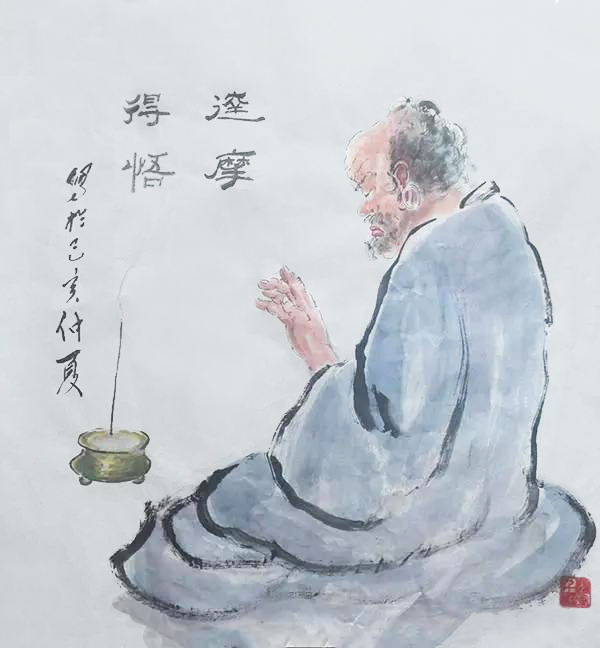 達摩
得悟
於己亥仲夏